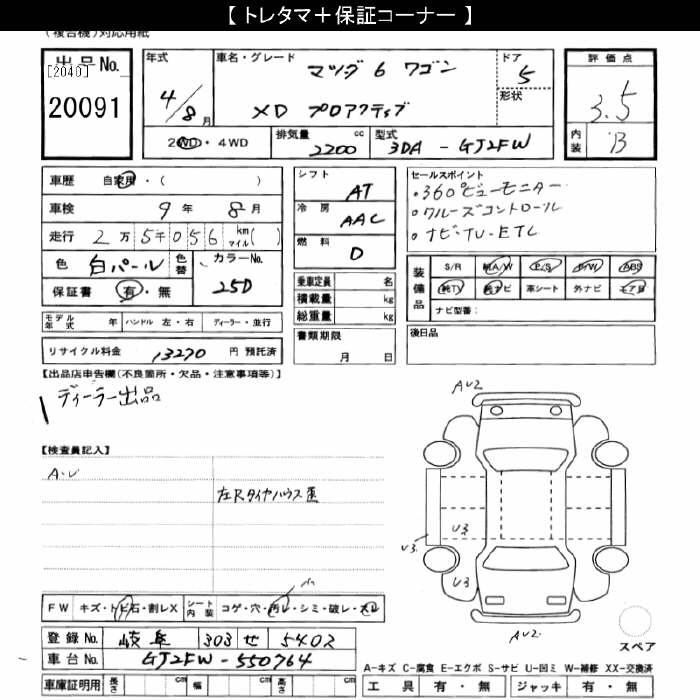 【 トレタマ＋保証コーナー 】
(複合機)対応用紙
出品No.
[2040]
20091
年式
4/8月
車名・グレード
マツダ6 ワゴン
XD プロアクティブ
ドア
5
形状
評価点
3.5
内装
B
2WD・4WD
排気量
2200 cc
型式
3DA - GJ2FW
車歴 自家用・( )
車検 9年 8月
走行 2万5千056 km マイル( )
色 白パール 色替 カラーNo. 25D
保証書 有・無
モデル年式 年 ハンドル 左・右 ディーラー・並行
リサイクル料金 13270 円 預託済
シフト
AT
冷房
AAC
燃料
D
乗車定員 名
積載量 kg
総重量 kg
書類期限
月 日
セールスポイント
・360°ビューモニター
・クルーズコントロール
・ナビ・TV・ETC
装備品
S/R 純A/W P/S P/W ABS
純TV 純ナビ 革シート 外ナビ エアB
ナビ型番:
後日品
【出品店申告欄(不良箇所・欠品・注意事項等)】
ディーラー出品
【検査員記入】
A・U
左Rタイヤハウス
AU2
U3.
U3.
U3
AU2.
スペア
FW キズ・トビ石・割レX シート内装 コゲ・穴・汚レ・シミ・破レ・スレ
登録No. 岐阜 303 せ 5402
車台No. GJ2FW-550764
車庫証明用 長さ cm 幅 cm 高さ cm
A-キズ C-腐食 E-エクボ S-サビ U-凹ミ W-補修 XX-交換済
工具 有・無 ジャッキ 有・無